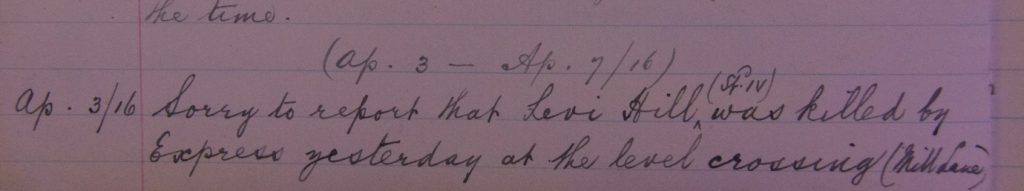 the time.
(Ap. 3 — Ap. 7/16)
Ap. 3/16 Sorry to report that Levi Hill, (St. IV) was killed by
Express yesterday at the level crossing (Mill Lane)